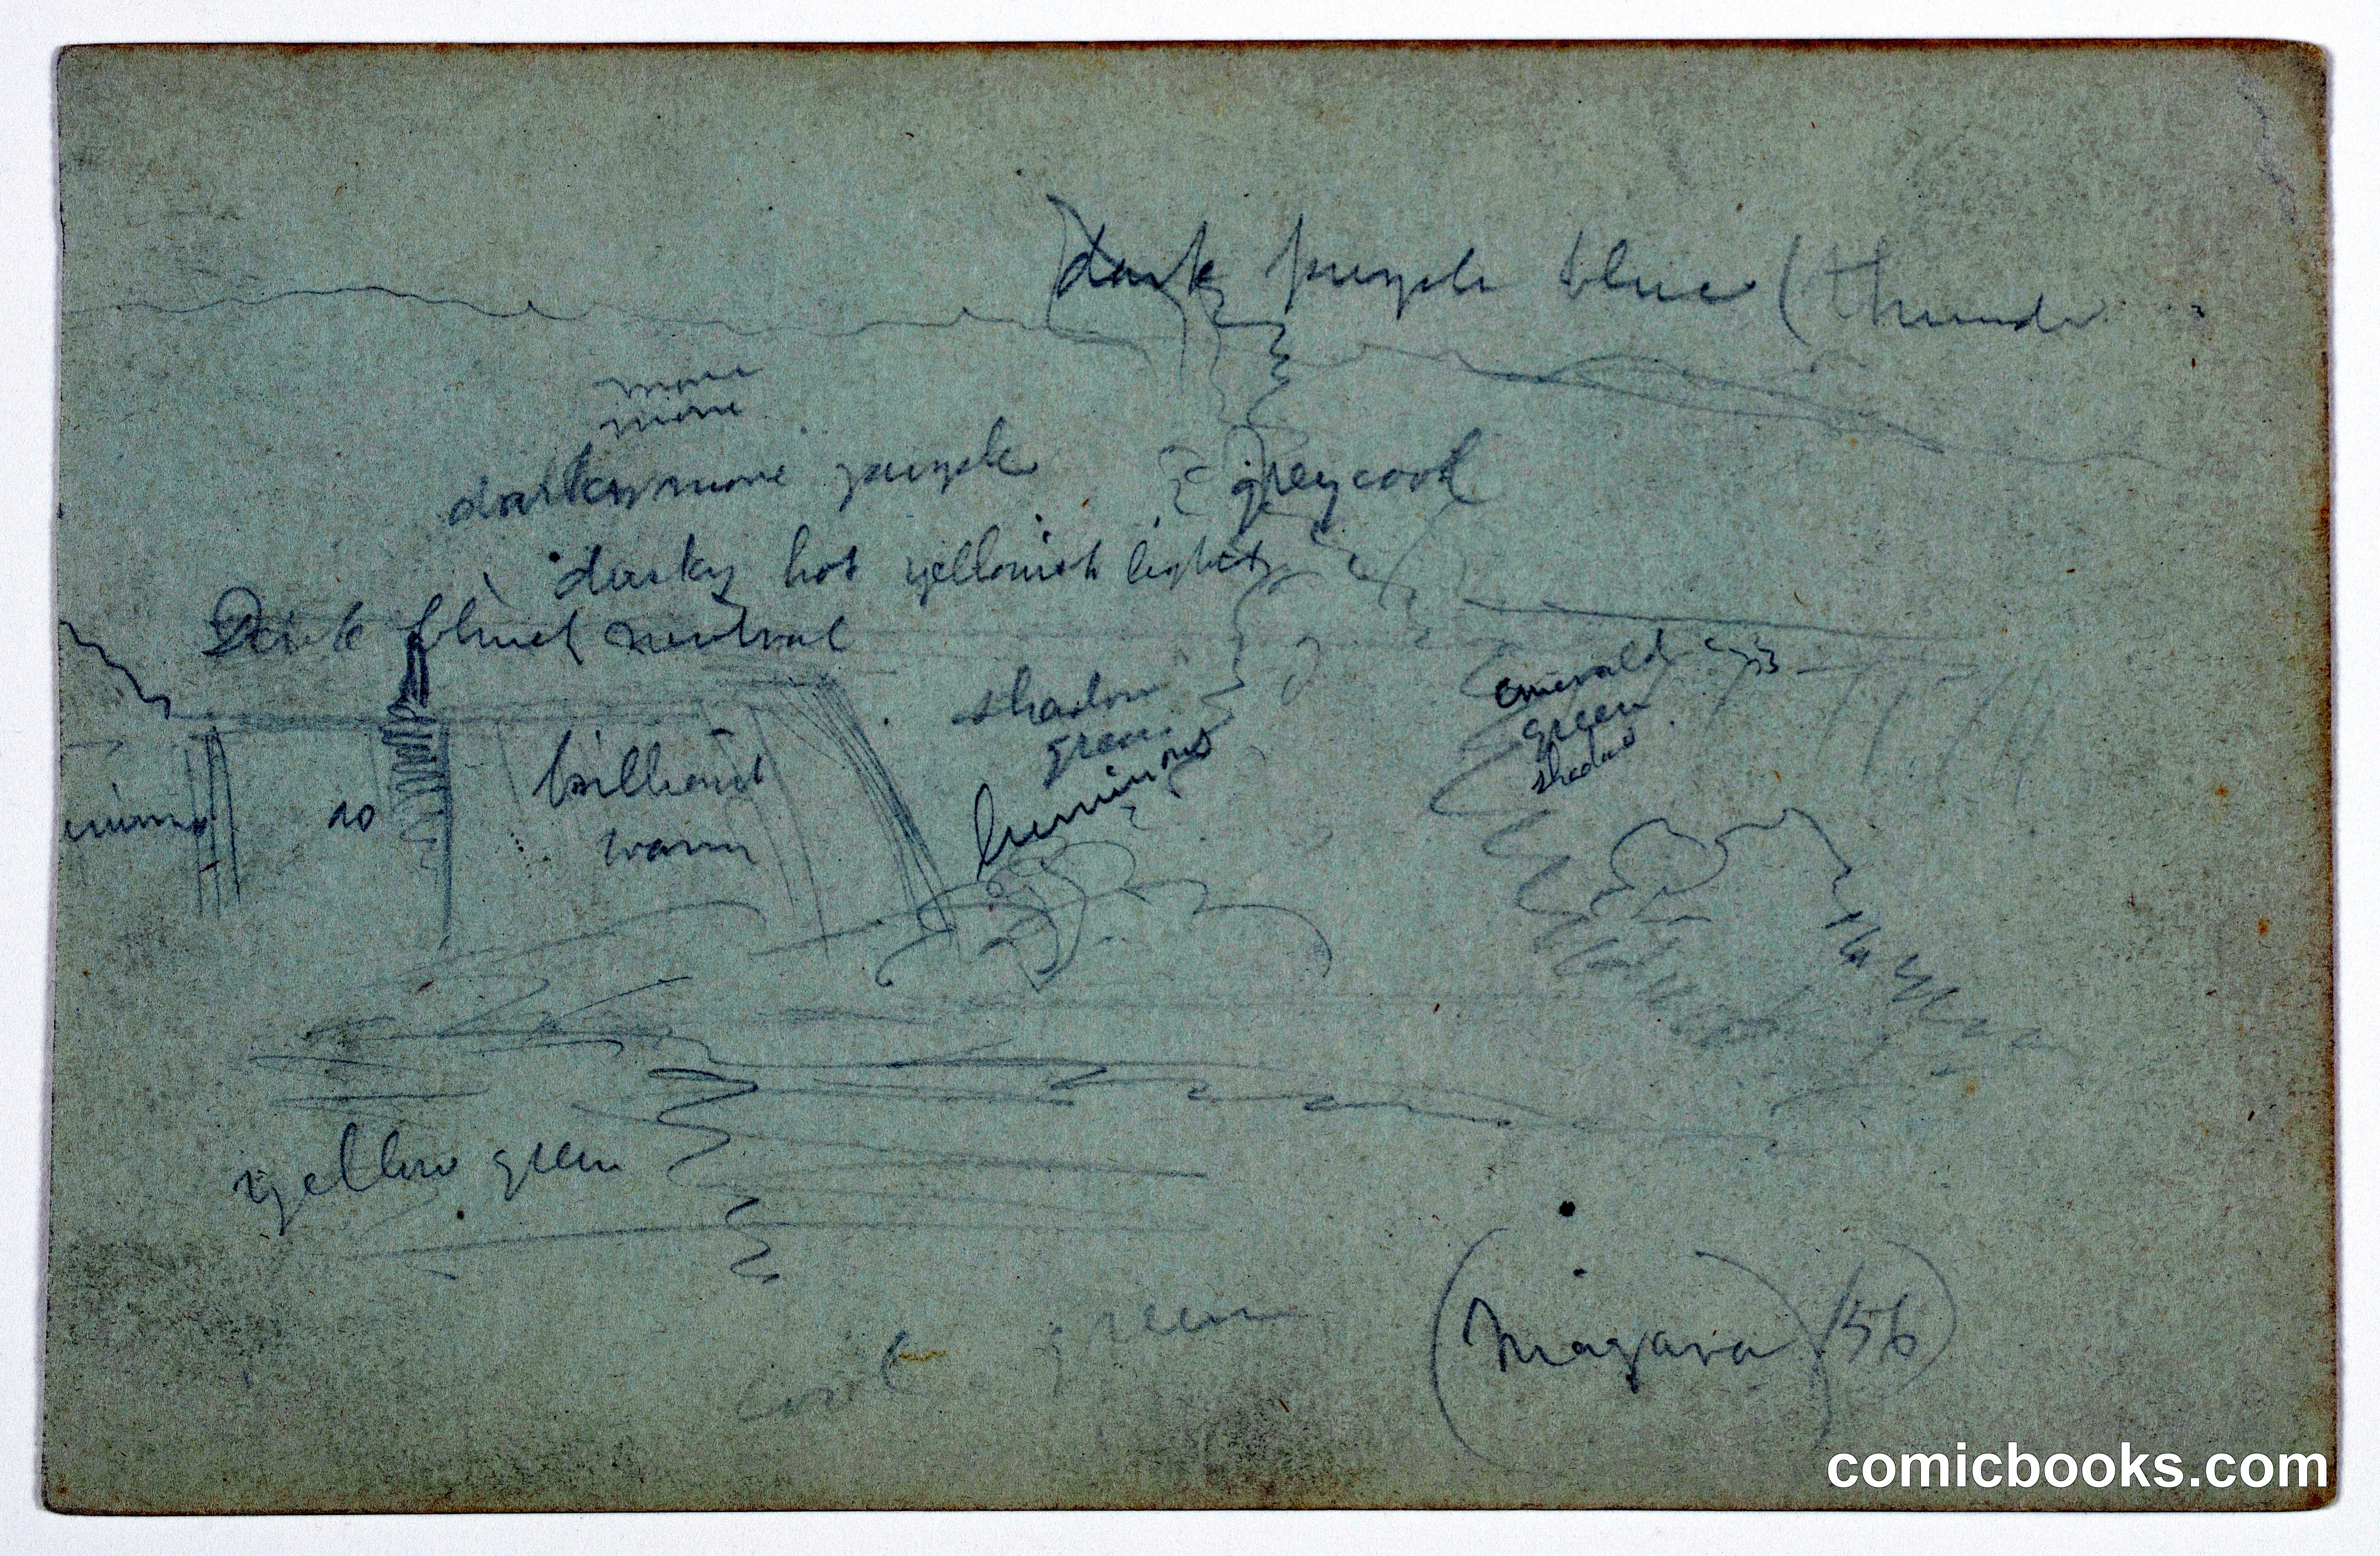 dark purple blue (thunder
more
more
darker more purple
grey cool
dusky hot yellowish light
Dark blueish neutral
shadow
green
luminous
emerald
green
shadow
do
brilliant
warm
yellow green
cool green
(Niagara) /56)
comicbooks.com